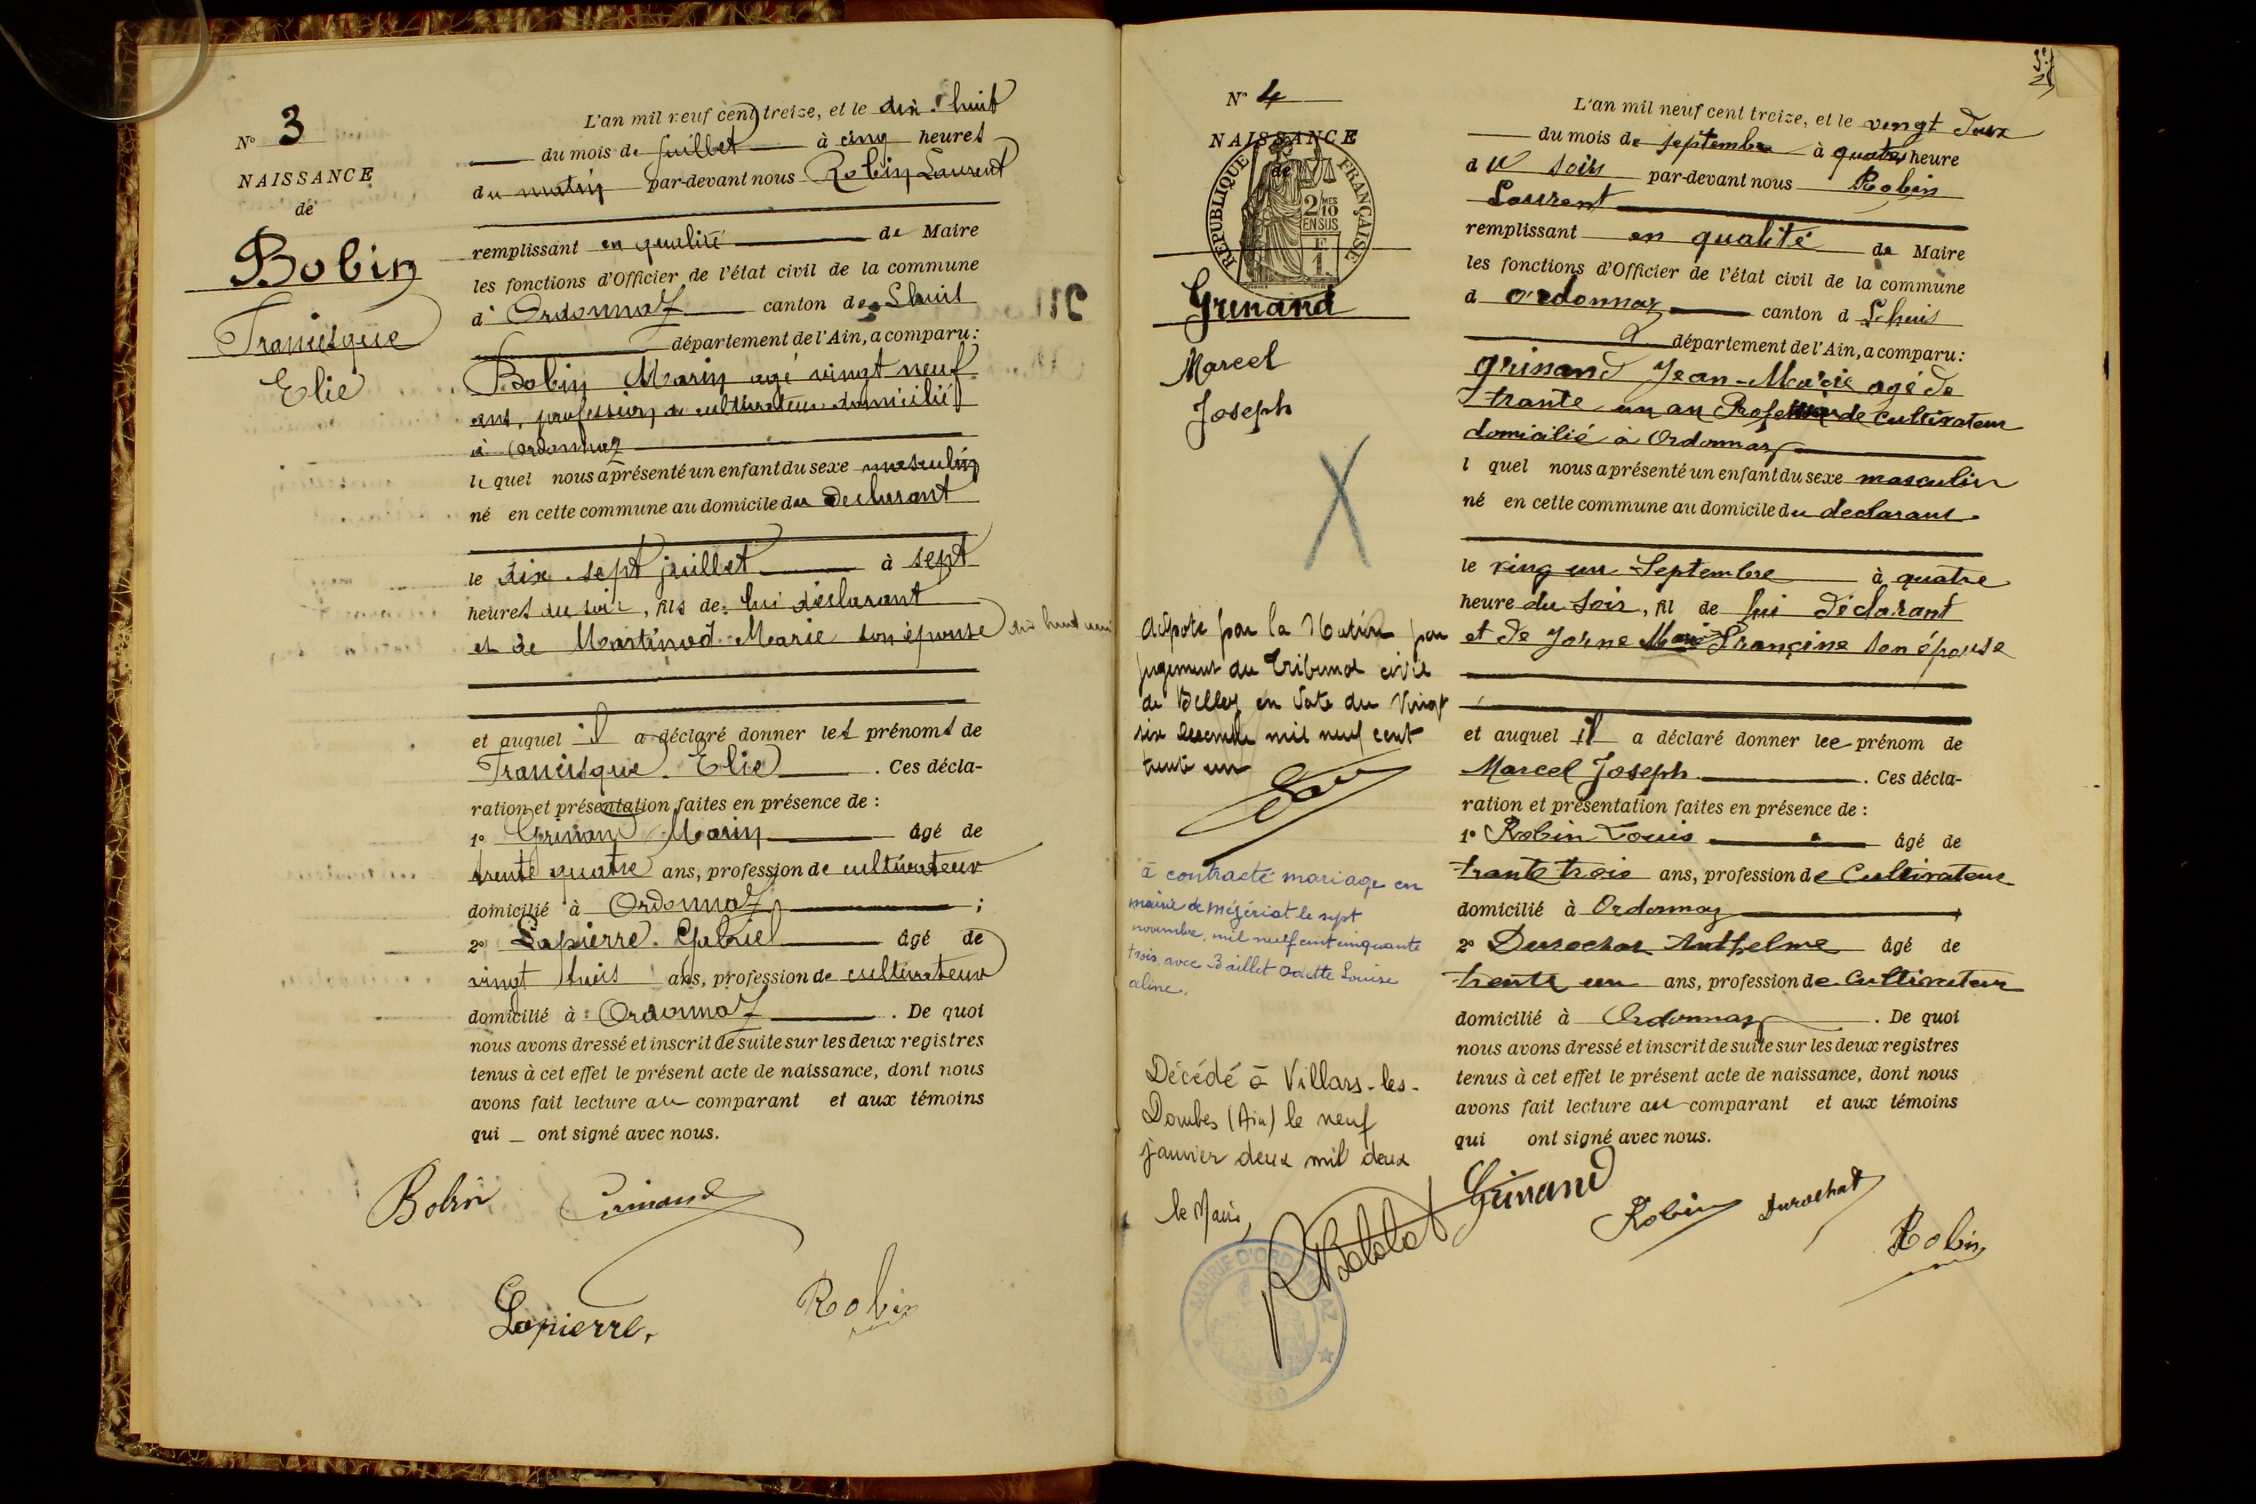 N° 3
NAISSANCE
de
Bobin
Francisque
Elie
L'an mil neuf cent treize, et le dix huit
du mois de juillet à cinq heures
du matin par-devant nous Robin Laurent
remplissant en qualité de Maire
les fonctions d'Officier de l'état civil de la commune
d' Ordonnaz canton de Lhuis
département de l'Ain, a comparu:
Bobin Marin agé vingt neuf
ans, profession de cultivateur domicilié
à Ordonnaz
le quel nous a présenté un enfant du sexe masculin
né en cette commune au domicile du declarant
le dix sept juillet à sept
heures du soir, fils de: lui déclarant
et de Martinod Marie son épouse
et auquel il a déclaré donner les prénoms de
Francisque Elie. Ces décla-
ration et présentation faites en présence de :
1° Grinand Marin âgé de
trente quatre ans, profession de cultivateur
domicilié à Ordonnaz ;
2° Lapierre Gabriel âgé de
vingt huit ans, profession de cultivateur
domicilié à Ordonnaz. De quoi
nous avons dressé et inscrit de suite sur les deux registres
tenus à cet effet le présent acte de naissance, dont nous
avons fait lecture au comparant et aux témoins
qui _ ont signé avec nous.
Bobin Grinand
Lapierre. Robin
N° 4
NAISSANCE
de
RÉPUBLIQUE FRANÇAISE
2/10 MES
EN SUS
F
1.
Grinand
Marcel
Joseph
X
Adopté par la Nation par
jugement du Tribunal civil
de Belley en date du Vingt
six decembre mil neuf cent
trente un
à contracté mariage en
mairie de Mézériat le sept
novembre mil neuf cent cinquante
trois avec Baillet Odette Louise
aline.
Décédé à Villars-les-
Dombes (Ain) le neuf
janvier deux mil deux
le Maire,
MAIRIE D'ORDONNAZ
L'an mil neuf cent treize, et le vingt deux
du mois de septembre à quatre heure
du soir par-devant nous Robin
Laurent
remplissant en qualité de Maire
les fonctions d'Officier de l'état civil de la commune
d ordonnaz canton d Lhuis
département de l'Ain, a comparu:
Grinand Jean-Marie agé de
trante un an Profession de Cultivateur
domicilié à Ordonnaz
l quel nous a présenté un enfant du sexe masculin
né en cette commune au domicile du declarant
le ving un Septembre à quatre
heure du soir, fil de lui déclarant
et de Jorne Marie Françine son épouse
et auquel il a déclaré donner les prénom de
Marcel Joseph. Ces décla-
ration et présentation faites en présence de :
1° Robin Louis âgé de
trante trois ans, profession de Cultivateur
domicilié à Ordonnaz
2° Durochat Anthelme âgé de
trente un ans, profession de Cultivateur
domicilié à Ordonnaz. De quoi
nous avons dressé et inscrit de suite sur les deux registres
tenus à cet effet le présent acte de naissance, dont nous
avons fait lecture au comparant et aux témoins
qui ont signé avec nous.
Grinand
Robin Durochat
Robin